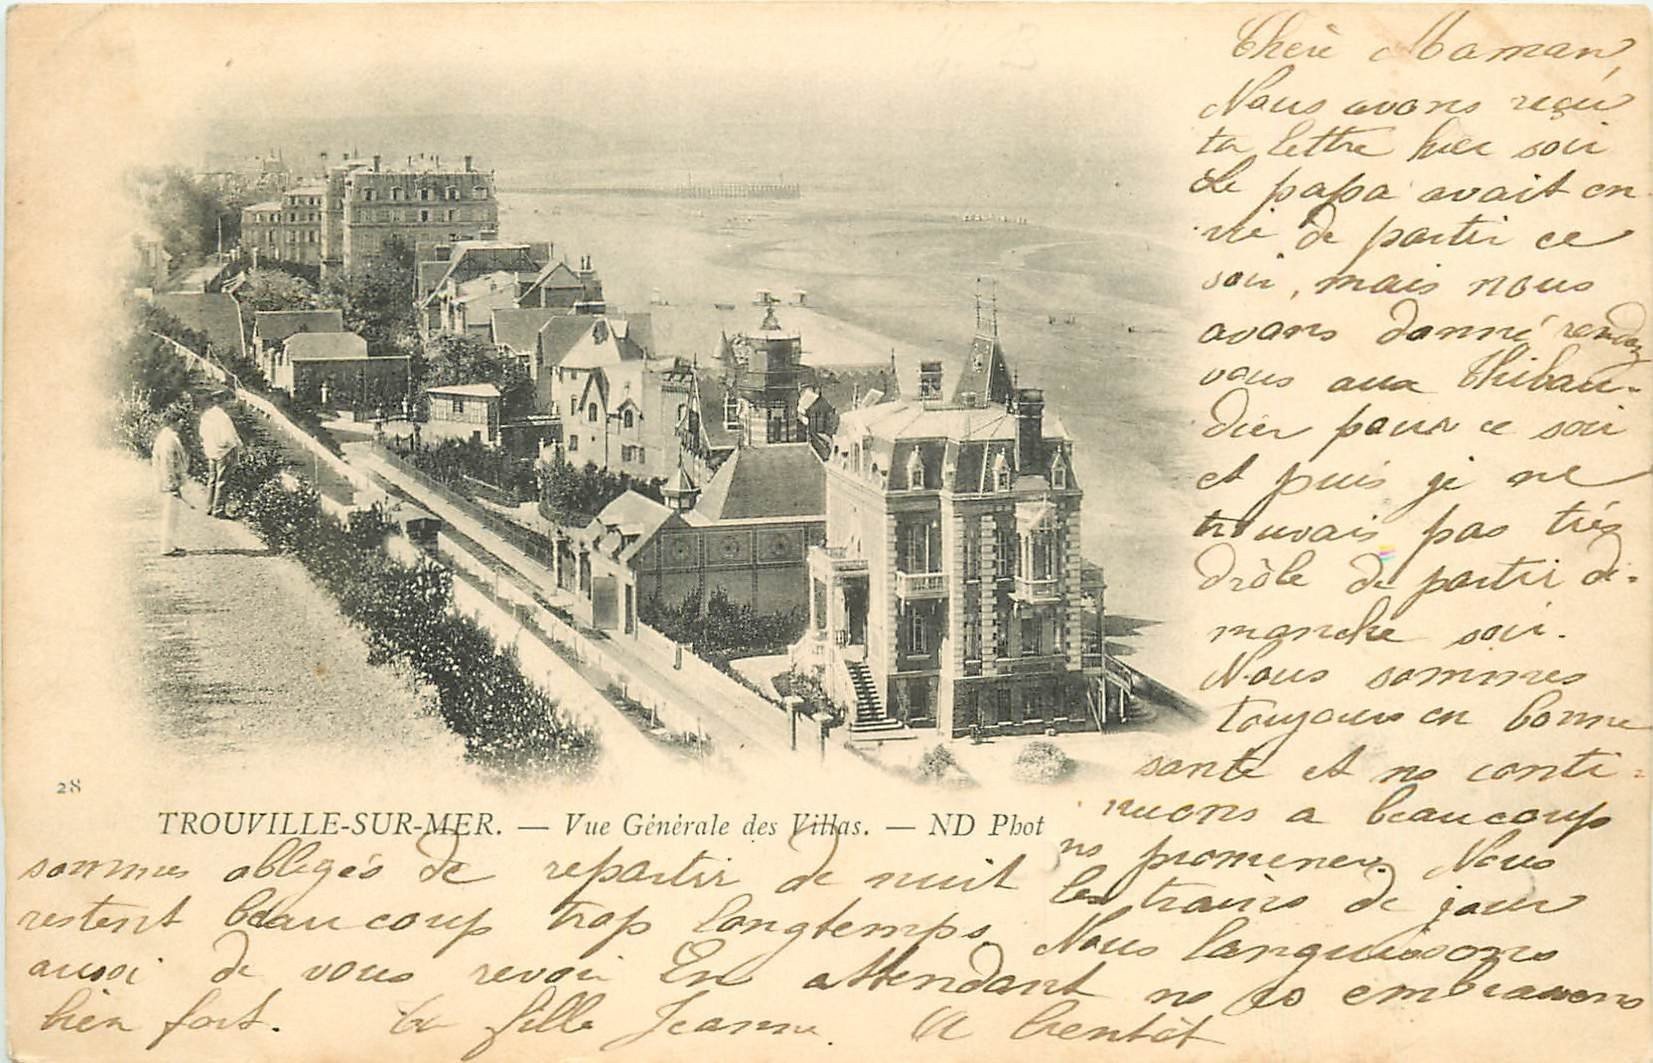 Chère Maman,
Nous avons reçu
ta lettre hier soir
Le papa avait en
vie de partir ce
soir, mais nous
avons donné rendez
vous aux Thibau-
dier pour ce soir
et puis je ne
trouvais pas très
drôle de partir di-
manche soir.
Nous sommes
toujours en bonne
santé et ns conti-
nuons a beaucoup
ns promener. Nous
28
TROUVILLE-SUR-MER. — Vue Générale des Villas. — ND Phot
sommes obligés de repartir de nuit les trains de jour
restent beaucoup trop longtemps. Nous languissons
aussi de vous revoir En attendant ns vs embrassons
bien fort. Ta fille Jeanne. A bientôt